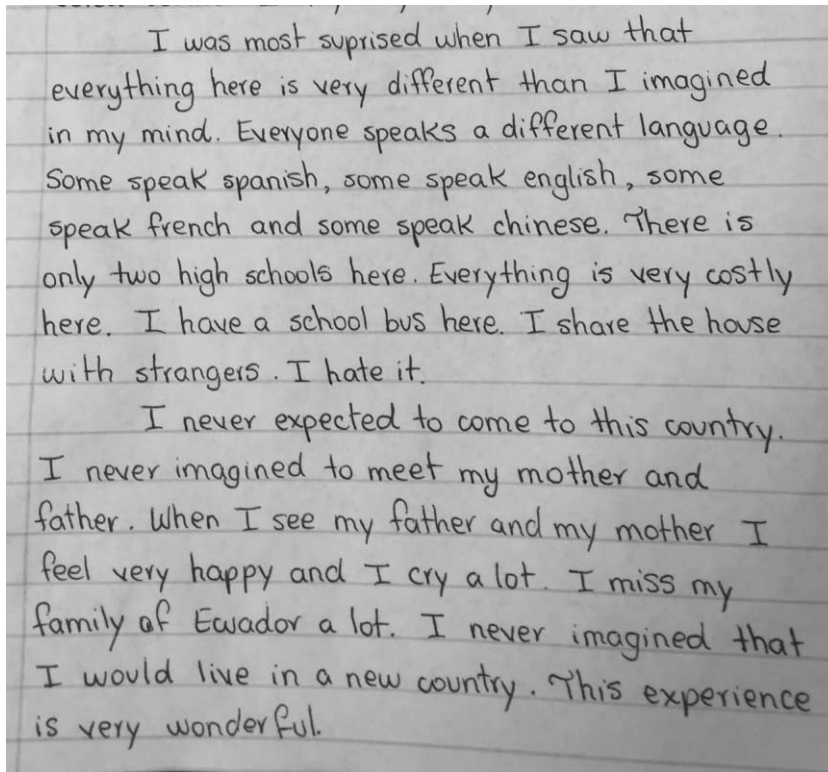 I was most suprised when I saw that
everything here is very different than I imagined
in my mind. Everyone speaks a different language.
Some speak spanish, some speak english, some
speak french and some speak chinese. There is
only two high schools here. Everything is very costly
here. I have a school bus here. I share the house
with strangers. I hate it.
I never expected to come to this country.
I never imagined to meet my mother and
father. When I see my father and my mother I
feel very happy and I cry a lot. I miss my
family of Ecuador a lot. I never imagined that
I would live in a new country. This experience
is very wonderful.